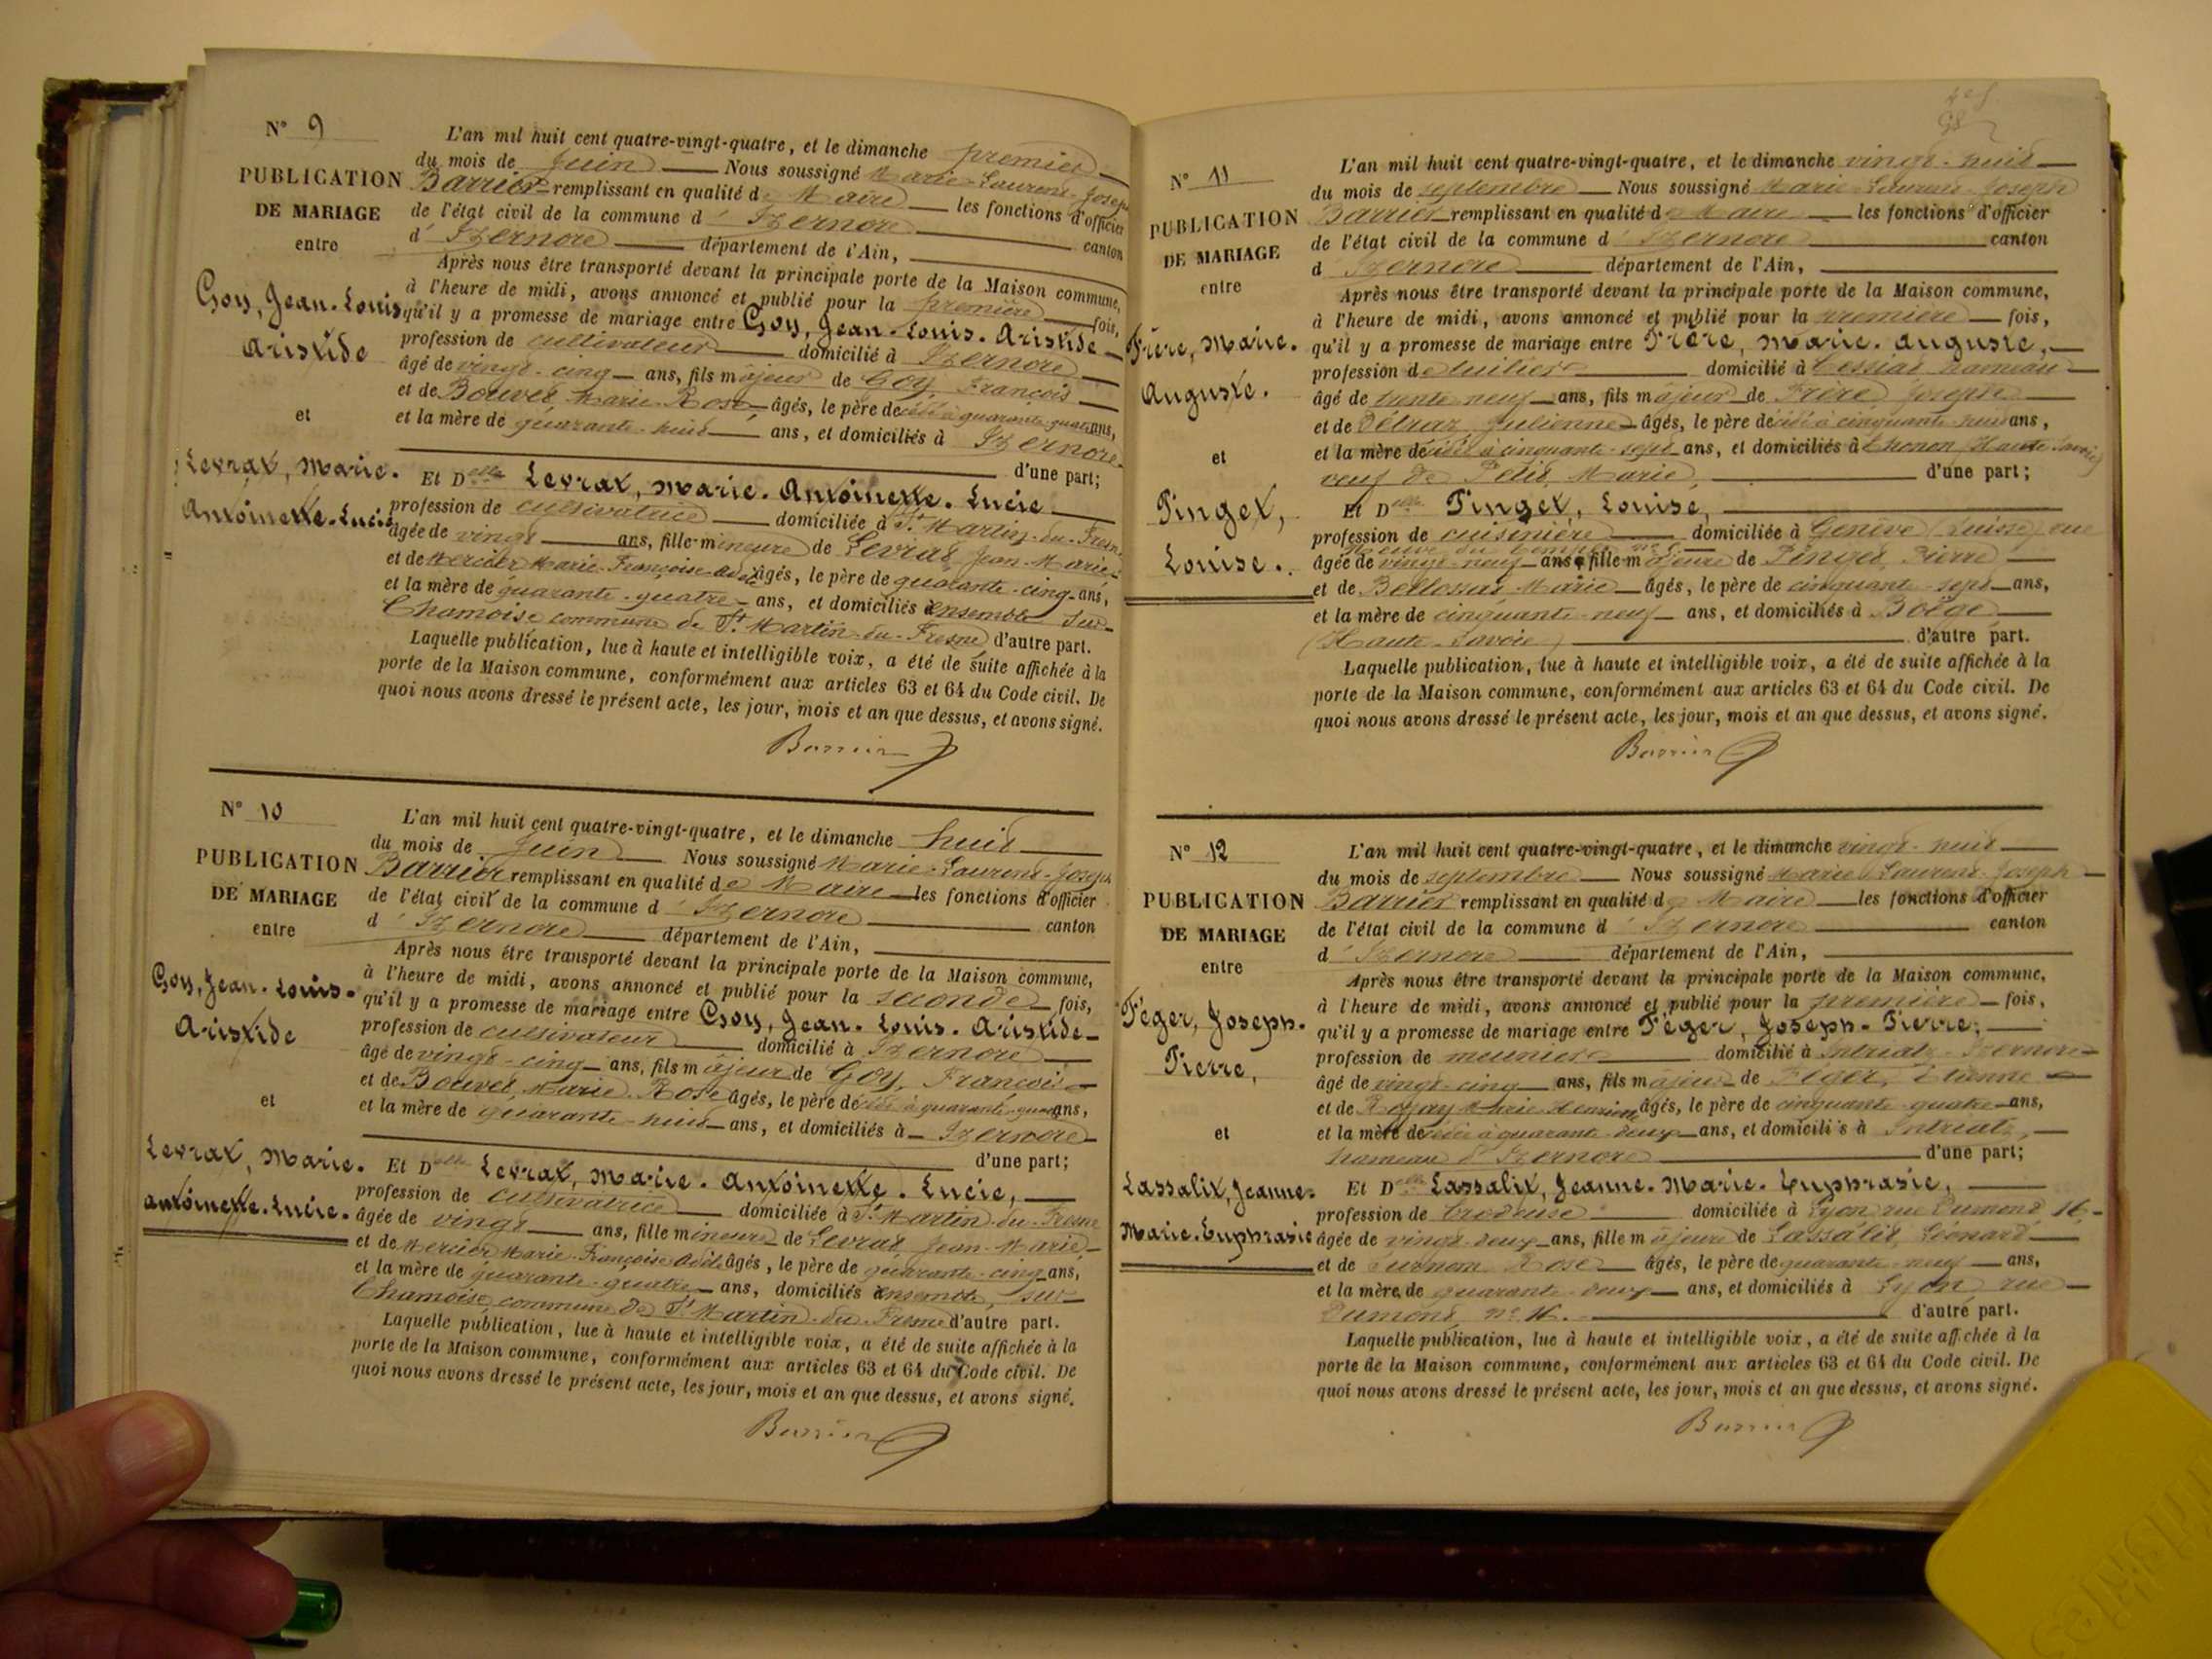 N° 9
PUBLICATION
DE MARIAGE
entre
Goy, Jean-Louis
Aristide
et
Levrat, Marie-
Antoinette-Lucie
L'an mil huit cent quatre-vingt-quatre, et le dimanche premier
du mois de Juin Nous soussigné Marie-Laurent-Joseph
Barrier remplissant en qualité de Maire les fonctions d'officier
de l'état civil de la commune d'Izernore canton
d'Izernore département de l'Ain,
Après nous être transporté devant la principale porte de la Maison commune,
à l'heure de midi, avons annoncé et publié pour la première fois,
qu'il y a promesse de mariage entre Goy, Jean-Louis-Aristide
profession de cultivateur domicilié à Izernore
âgé de vingt-cinq ans, fils majeur de Goy, François
et de Bouvet Marie-Rose âgés, le père décédé à quarante-quatre ans,
et la mère de quarante-huit ans, et domiciliés à Izernore
d'une part;
Et Delle Levrat, Marie-Antoinette-Lucie
profession de cultivatrice domiciliée à St Martin-du-Fresne
âgée de vingt ans, fille mineure de Levrat Jean-Marie,
et de Mercier Marie-Françoise-Adèle âgés, le père de quarante-cinq ans,
et la mère de quarante-quatre ans, et domiciliés ensemble sur
Chamoise commune de St Martin-du-Fresne d'autre part.
Laquelle publication, lue à haute et intelligible voix, a été de suite affichée à la
porte de la Maison commune, conformément aux articles 63 et 64 du Code civil. De
quoi nous avons dressé le présent acte, les jour, mois et an que dessus, et avons signé.
Barrier
N° 10
PUBLICATION
DE MARIAGE
entre
Goy, Jean-Louis-
Aristide
et
Levrat, Marie-
Antoinette-Lucie.
L'an mil huit cent quatre-vingt-quatre, et le dimanche huit
du mois de Juin Nous soussigné Marie-Laurent-Joseph
Barrier remplissant en qualité de Maire les fonctions d'officier
de l'état civil de la commune d'Izernore
d'Izernore département de l'Ain, canton
Après nous être transporté devant la principale porte de la Maison commune,
à l'heure de midi, avons annoncé et publié pour la seconde fois,
qu'il y a promesse de mariage entre Goy, Jean-Louis-Aristide
profession de cultivateur domicilié à Izernore
âgé de vingt-cinq ans, fils majeur de Goy, François
et de Bouvet, Marie Rose âgés, le père décédé à quarante-quatre ans,
et la mère de quarante-huit ans, et domiciliés à Izernore
d'une part;
Et Delle Levrat, Marie-Antoinette-Lucie,
profession de cultivatrice domiciliée à St Martin-du-Fresne
âgée de vingt ans, fille mineure de Levrat Jean-Marie,
et de Mercier Marie-Françoise Adèle âgés, le père de quarante-cinq ans,
et la mère de quarante-quatre ans, domiciliés ensemble, sur
Chamoise commune de St Martin-du-Fresne d'autre part.
Laquelle publication, lue à haute et intelligible voix, a été de suite affichée à la
porte de la Maison commune, conformément aux articles 63 et 64 du Code civil. De
quoi nous avons dressé le présent acte, les jour, mois et an que dessus, et avons signé.
Barrier
N° 11
PUBLICATION
DE MARIAGE
entre
Frère, Marie-
Auguste.
et
Pinget,
Louise.
L'an mil huit cent quatre-vingt-quatre, et le dimanche vingt-huit
du mois de septembre Nous soussigné Marie-Laurent-Joseph
Barrier remplissant en qualité de Maire les fonctions d'officier
de l'état civil de la commune d'Izernore canton
d'Izernore département de l'Ain,
Après nous être transporté devant la principale porte de la Maison commune,
à l'heure de midi, avons annoncé et publié pour la première fois,
qu'il y a promesse de mariage entre Frère, Marie-Auguste,
profession de tuilier domicilié à Cessiat hameau
âgé de trente-neuf ans, fils majeur de Frère Joseph
et de Détraz Julienne âgés, le père décédé à cinquante-huit ans,
et la mère décédée à cinquante-sept ans, et domiciliés à Thonon (Haute-Savoie)
veuf de Petit, Marie, d'une part;
Et Delle Pinget, Louise,
profession de cuisinière domiciliée à Genève (Suisse) rue
Neuve du Temple n°
âgée de vingt-neuf ans fille majeure de Pinget, Pierre
et de Bellossat Marie âgés, le père de cinquante-sept ans,
et la mère de cinquante-neuf ans, et domiciliés à Boëge
(Haute-Savoie) d'autre part.
Laquelle publication, lue à haute et intelligible voix, a été de suite affichée à la
porte de la Maison commune, conformément aux articles 63 et 64 du Code civil. De
quoi nous avons dressé le présent acte, les jour, mois et an que dessus, et avons signé.
Barrier
N° 12
PUBLICATION
DE MARIAGE
entre
Féger, Joseph-
Pierre,
et
Lassalit, Jeanne-
Marie-Euphrasie
L'an mil huit cent quatre-vingt-quatre, et le dimanche vingt-huit
du mois de septembre Nous soussigné Marie Laurent-Joseph
Barrier remplissant en qualité de Maire les fonctions d'officier
de l'état civil de la commune d'Izernore canton
d'Izernore département de l'Ain,
Après nous être transporté devant la principale porte de la Maison commune,
à l'heure de midi, avons annoncé et publié pour la première fois,
qu'il y a promesse de mariage entre Féger, Joseph-Pierre,
profession de meunier domicilié à Intriat, Izernore
âgé de vingt-cinq ans, fils majeur de Féger, Etienne
et de Marie âgés, le père de cinquante-quatre ans,
et la mère décédée à quarante-deux ans, et domiciliés à Intriat,
hameau d'Izernore d'une part;
Et Delle Lassalit, Jeanne-Marie-Euphrasie,
profession de brodeuse domiciliée à Lyon rue Dumont 16,
âgée de vingt-deux ans, fille majeure de Lassalit, Léonard
et de Surnom Rose âgés, le père de quarante-neuf ans,
et la mère de quarante-deux ans, et domiciliés à Lyon rue
Dumont, n° 16. d'autre part.
Laquelle publication, lue à haute et intelligible voix, a été de suite affichée à la
porte de la Maison commune, conformément aux articles 63 et 64 du Code civil. De
quoi nous avons dressé le présent acte, les jour, mois et an que dessus, et avons signé.
Barrier